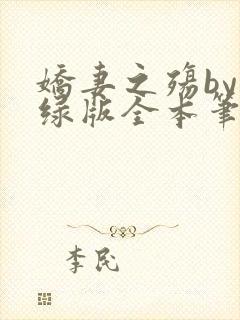 娇妻之殇by
绿版全本笔
李民